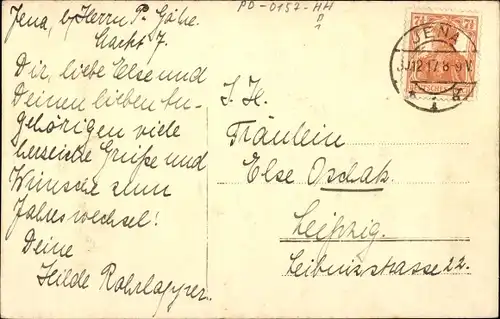 PD-0157-HH
D
1
Jena, b/Herrn P. Göhe.
Markt 7.
Dir, liebe Else und
Deinen lieben An-
gehörigen viele
herzliche Grüße und
Wünsche zum
Jahreswechsel!
Deine
Hilde
7½ 7½
JENA
30.12.17. 8-9V.
* 1 k
S. H.
Fräulein
Else Oschatz
Leipzig.
Leibnizstrasse 22.